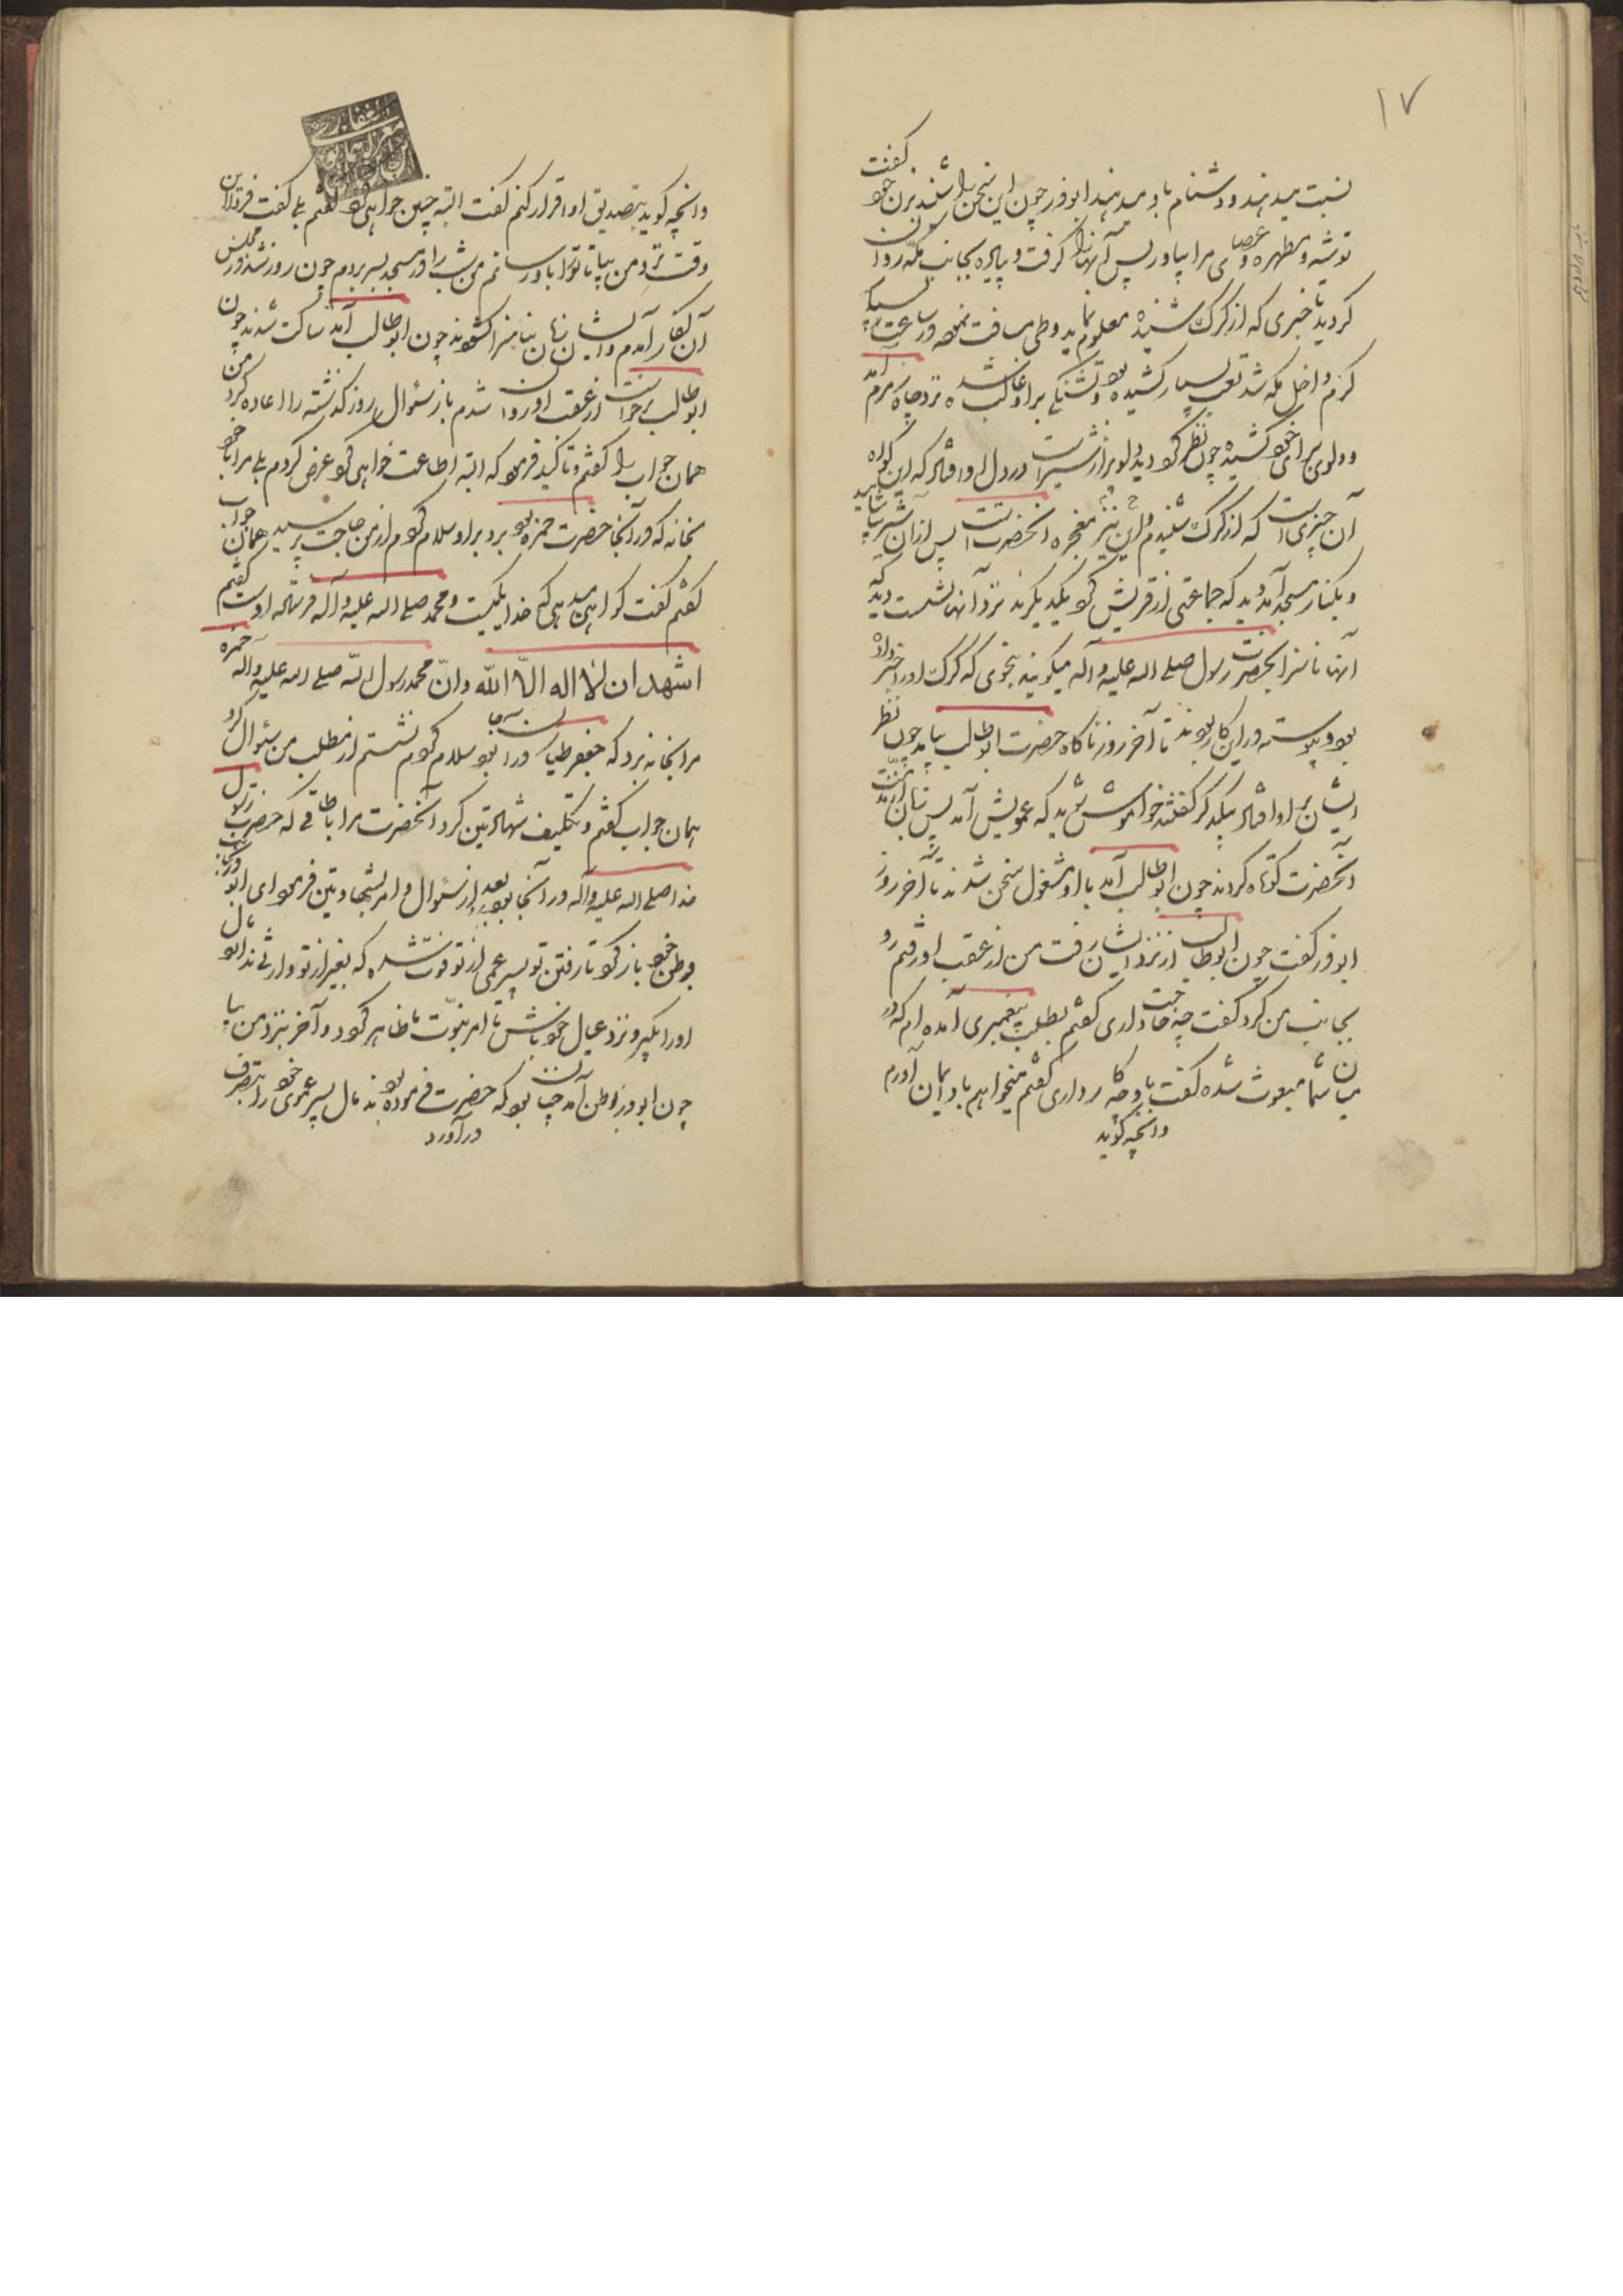 ۱۷
نسبت میدهند و دشنام باو میدهند ابوذر چون این سخن را شنید بزن خود گفت
توشه و مطهره و عصای مرا بیاور پس آنها را گرفت و پیاده بجانب مکه روان
کردید تا خبری که از کرک شنیده معلوم نماید و طی مسافت نمود و در ساعت بسیار
کرم داخل مکه شد تعب بسیار کشیده بود و تشنگی بر او غالب شده نزد چاه زمزم آمد
و دلوی برای خود کشید چون نظر کرد دید دلو پر از شیر است در دل او افتاد که این گواه
آن چیزیست که از کرک شنیدم و این نیز معجزه آنحضرت است پس از آن شیر بیاشامید
و بکنار مسجد آمد دید که جماعتی از قریش کرد یکدیگرند نزد آنها نشست دید که
آنها ناسزا بحضرت رسول صلی الله علیه و آله میکویند بنحوی که کرک او را خبر داده
بود و پیوسته در این کار بودند تا آخر روز ناکاه حضرت ابوطالب بیامد چون نظر
ایشان بر او افتاد بیکدیکر کفتند خواموش شوید که عمویش آمد پس زبان از مذمت
آنحضرت کوتاه کردند چون ابوطالب آمد با او مشغول سخن شدند تا آخر روز
ابوذر کفت چون ابوطالب از نزد ایشان رفت من از عقب او رفتم رو
بجانب من کرد کفت چه حاجت داری کفتم بطلب پیغمبری آمده ام که در
میان شما مبعوث شده کفت باو چه کار داری کفتم میخواهم باو ایمان آورم
وانچه کوید
وانچه کوید بتصدیق او اقرار کنم کفت البته چنین خواهی کرد کفتم بلی کفت فردا این
وقت نزد من بیا تا ترا باو رسانم من شب را در مسجد بسر بردم چون روز شد در مجلس
آن کفار آمدم و ایشان زبان بناسزا کشودند چون ابوطالب آمد ساکت شدند چون
ابوطالب برخواست از عقب او روان شدم باز سئوال روز کذشته را اعاده کرد من
همان جواب را کفتم و تاکید فرمود که البته اطاعت خواهی کرد عرض کردم بلی مرا با خود
بخانه که در آنجا حضرت حمزه بود برد بر او سلام کردم از من حاجت پرسید همان جواب
کفتم کفت کواهی میدهی که خدا یکیست و محمد صلی الله علیه و آله فرستاده اوست کفتم
اشهد ان لا اله الا الله وان محمد رسول الله صلی الله علیه و اله حمزه
مرا بخانه برد که جعفر طیار در آنجا بود سلام کردم نشستم از مطلب من سئوال کرد
همان جواب کفتم و تکلیف شهادتین کرد آنحضرت مرا باطاقی که حضرت رسول
خدا صلی الله علیه و آله در آنجا بود برد بعد از سئوال و امر بشهادتین فرمود ای ابوذر بجانب
وطن خود باز کرد تا رفتن تو پسر عمی از تو فوت شده که بغیر از تو وارثی ندارد مال
او را بکیر و نزد عیال خود باش تا امر نبوت ما ظاهر کردد و آخر بنزد من بیا
چون ابوذر بوطن آمد چنان بود که حضرت فرموده بودند مال پسر عموی خود را بتصرف
درآورد